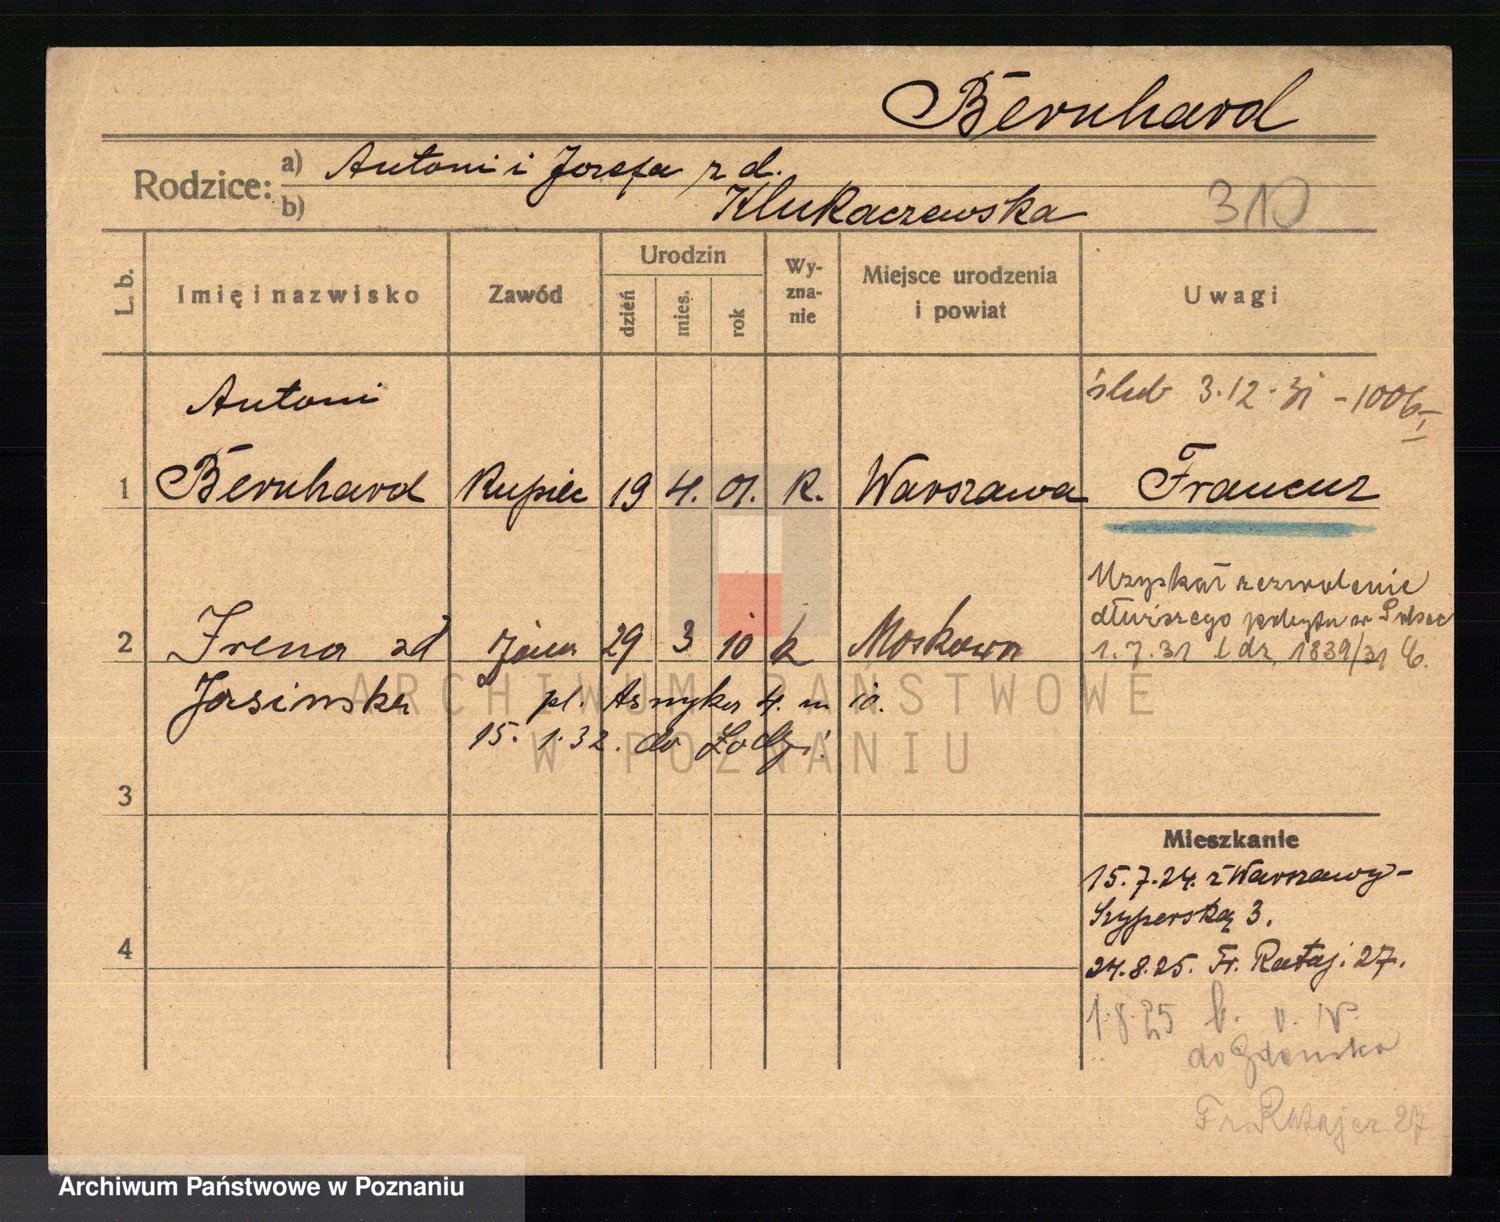 Bernhard
Rodzice: a) Antoni i Jozefa z d.
b) Klukaczewska
310
L. b.
Imię i nazwisko
Zawód
Urodzin
dzień
mies.
rok
Wy-
zna-
nie
Miejsce urodzenia
i powiat
Uwagi
ślub 3.12.31 - 1006
Antoni
1 Bernhard kupiec 19 4. 01. k. Warszawa Francuz
Uzyskał zezwolenie
dłuższego pobytu w Polsce
1.7.31 l dz. 1839/31
2 Irena zd żona 29 3 10 k Moskwa
Jasinska pl. Asnyka 4. m 10.
15. 1.32. do Łodzi
3
Mieszkanie
15.7.24. z Warszawy-
Szyperską 3.
4
24.8.25. Fr. Rataj. 27.
1.8.25
do Gdańska
Fr. Ratajcz. 27
ARCHIWUM PAŃSTWOWE
W POZNANIU
Archiwum Państwowe w Poznaniu